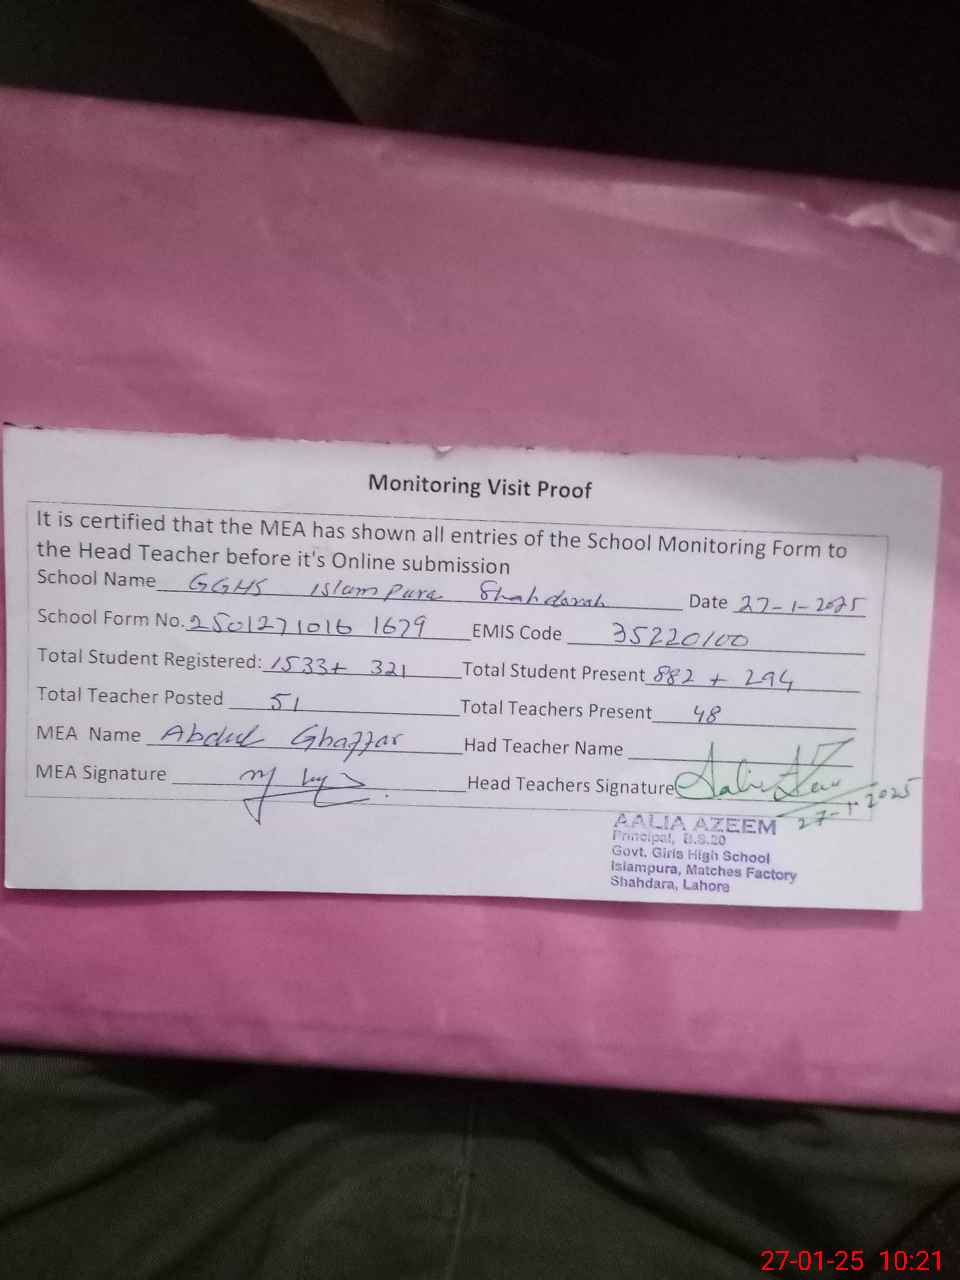 Monitoring Visit Proof
It is certified that the MEA has shown all entries of the School Monitoring Form to
the Head Teacher before it's Online submission
School Name GGHS Islampura Shahdarah Date 27-1-2025
School Form No. 2501271016 1679 EMIS Code 35220100
Total Student Registered: 1533+ 321 Total Student Present 882 + 294
Total Teacher Posted 51 Total Teachers Present 48
MEA Name Abdul Ghaffar Had Teacher Name
MEA Signature Head Teachers Signature
27-1-2025
AALIA AZEEM
Principal, B.S.20
Govt. Girls High School
Islampura, Matches Factory
Shahdara, Lahore
27-01-25 10:21